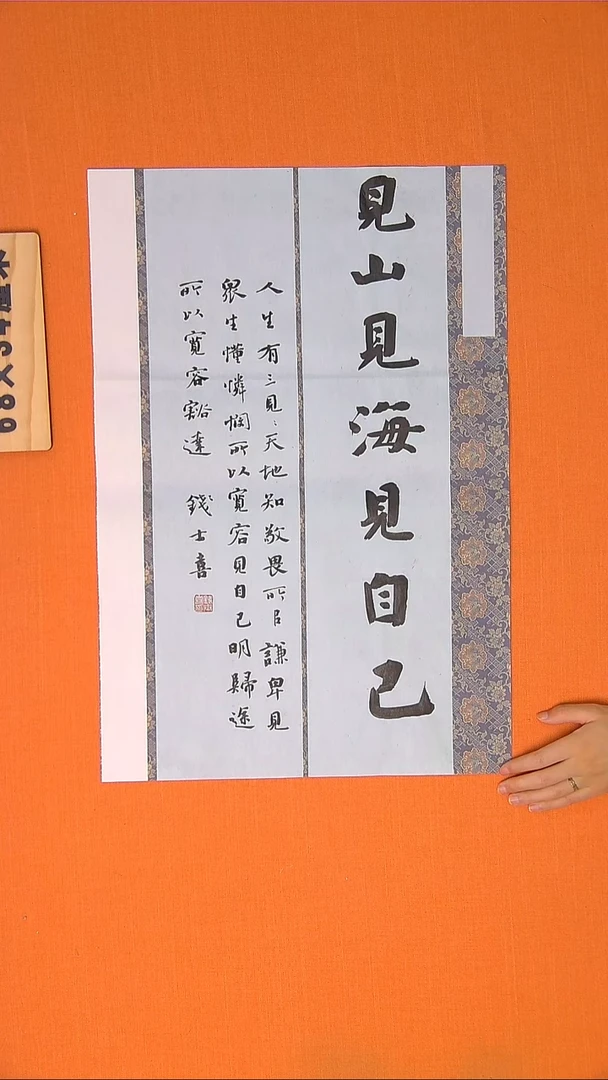 見山見海見自己
人生有三見〻天地知敬畏所㠯謙卑見
眾生懂憐憫所以寬容見自己明歸途
所以寬容豁達 錢士喜